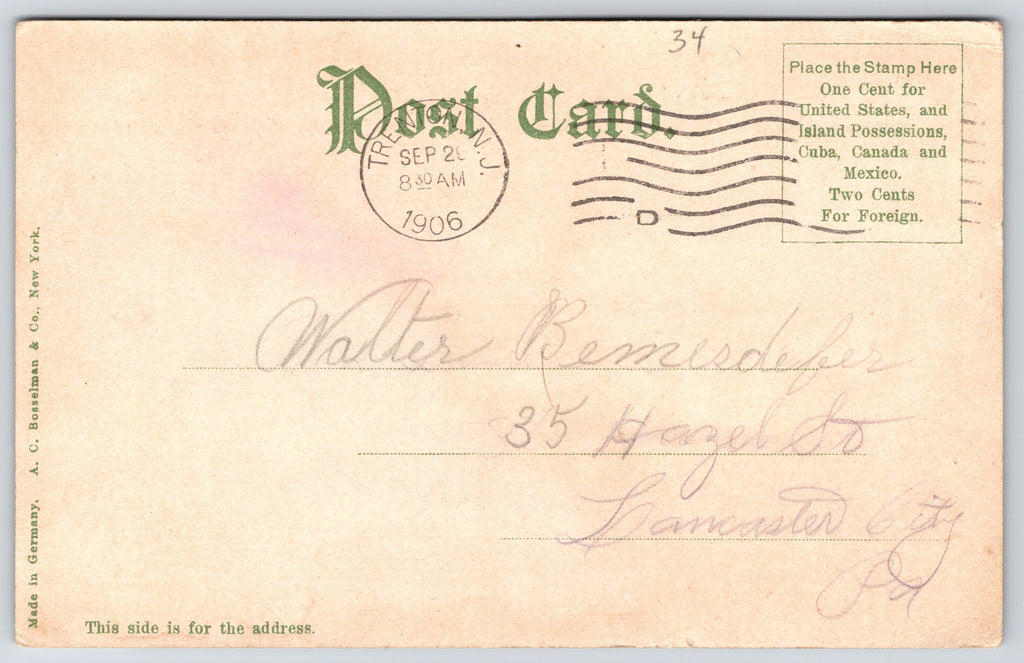 34
Post Card.
Place the Stamp Here
One Cent for
United States, and
Island Possessions,
Cuba, Canada and
Mexico.
Two Cents
For Foreign.
TRENTON, N.J.
SEP 2
8 30 AM
1906
D
Walter Bemesdefer
35 Hazel St
Lancaster City
Pa
Made in Germany. A. C. Bosselman & Co., New York.
This side is for the address.